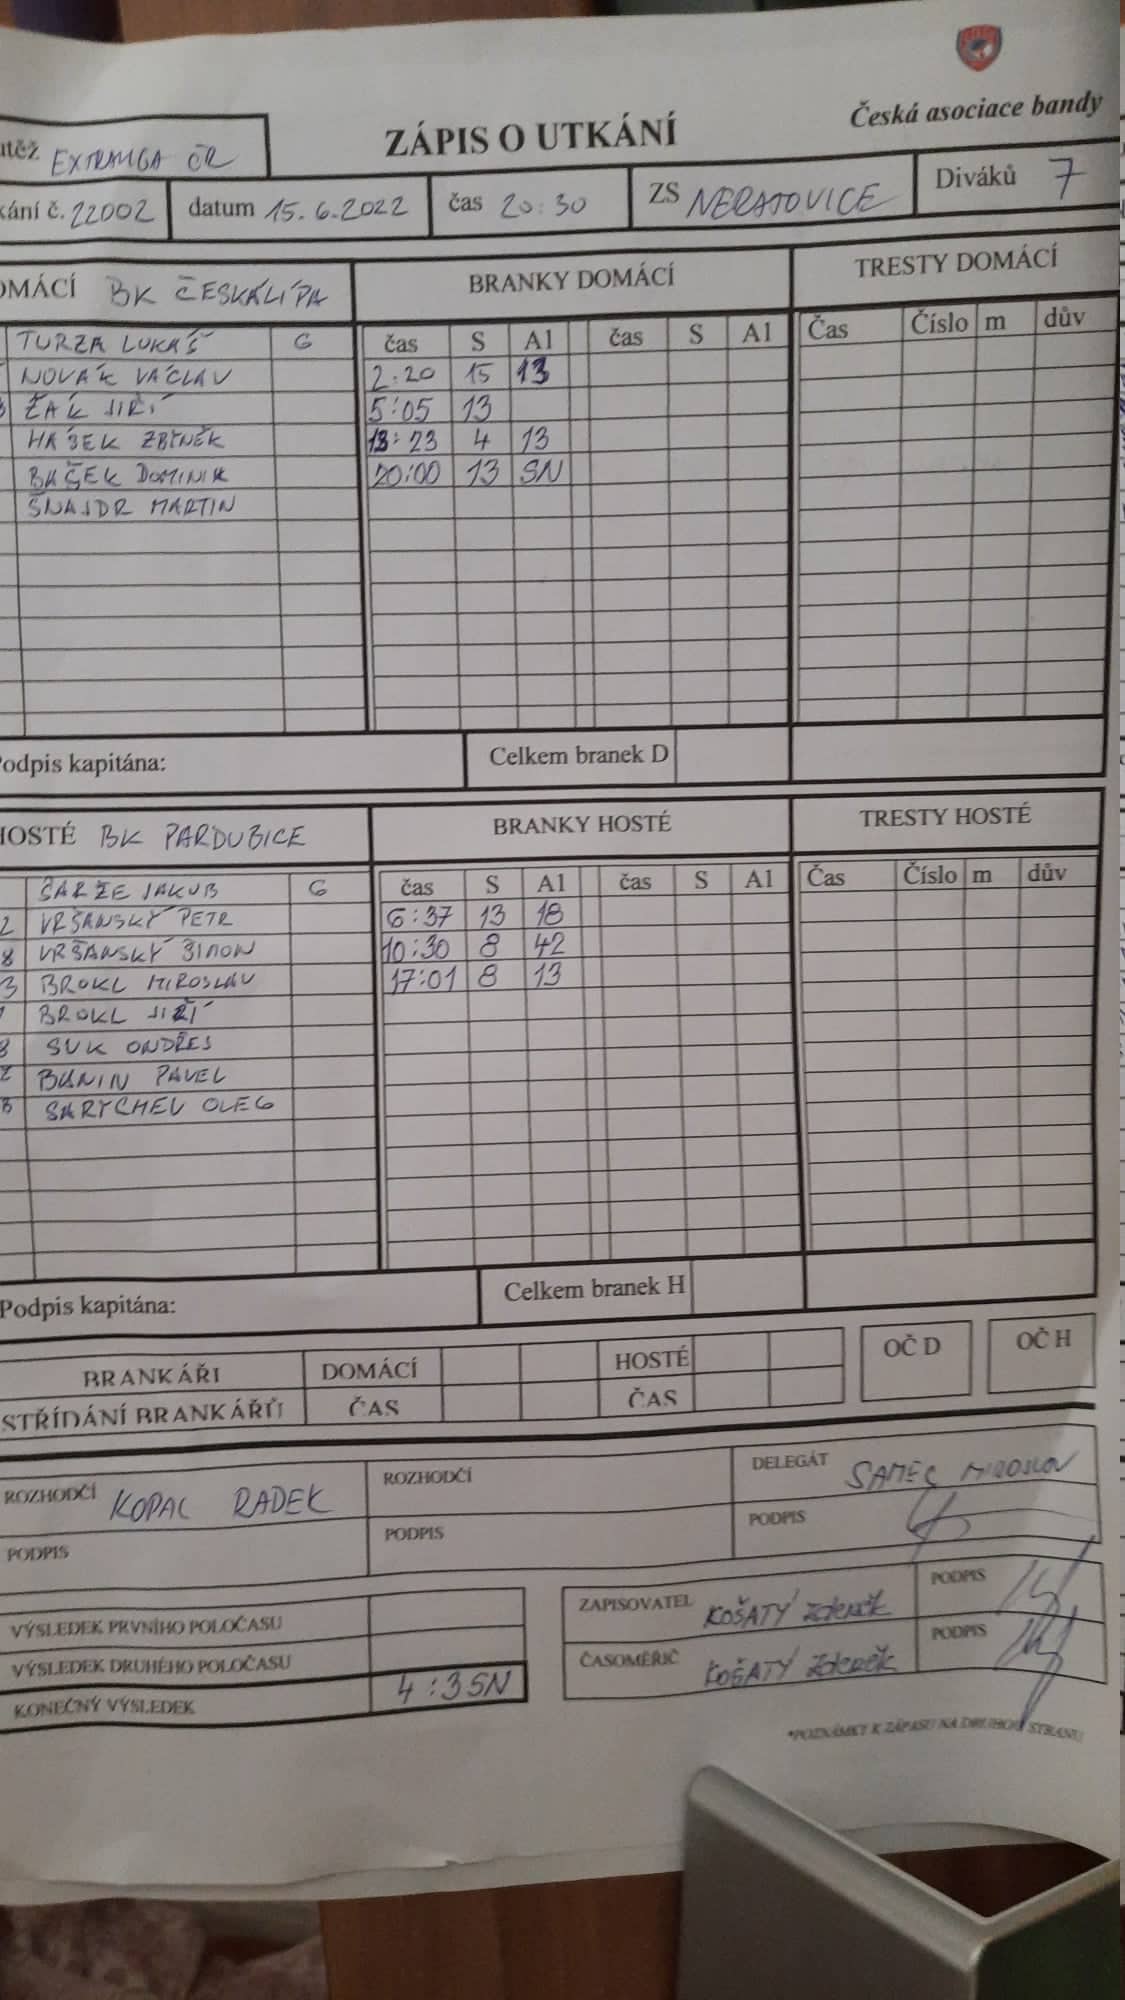 Česká asociace bandy
ZÁPIS O UTKÁNÍ
utěž EXTRALIGA ČR
kání č. 22002 datum 15.6.2022 čas 20:30 ZS NERATOVICE Diváků 7
OMÁCÍ BK ČESKÁ LÍPA BRANKY DOMÁCÍ TRESTY DOMÁCÍ
TURZA LUKÁŠ G čas S A1 čas S A1 Čas Číslo m dův
NOVÁK VÁCLAV 2:20 15 13
3 ŽÁK JIŘÍ 5:05 13
HAŠEK ZBYNĚK 13:23 4 13
BAŠEK DOMINIK 20:00 13 SN
ŠNAJDR MARTIN
Podpis kapitána: Celkem branek D
HOSTÉ BK PARDUBICE BRANKY HOSTÉ TRESTY HOSTÉ
ČARŽE JAKUB G čas S A1 čas S A1 Čas Číslo m dův
2 VRŠANSKÝ PETR 6:37 13 18
8 VRŠANSKÝ ŠIMON 10:30 8 42
3 BROKL MIROSLAV 17:01 8 13
BROKL JIŘÍ
8 SUK ONDŘEJ
2 BUNIN PAVEL
SARYCHEV OLEG
Podpis kapitána: Celkem branek H
BRANKÁŘI DOMÁCÍ HOSTÉ OČ D OČ H
STŘÍDÁNÍ BRANKÁŘŮ ČAS ČAS
ROZHODČÍ KOPAC RADEK ROZHODČÍ DELEGÁT SAMEC MIROSLAV
PODPIS PODPIS PODPIS
VÝSLEDEK PRVNÍHO POLOČASU ZAPISOVATEL KOŠATÝ Zdeněk PODPIS
VÝSLEDEK DRUHÉHO POLOČASU ČASOMĚŘIČ KOŠATÝ Zdeněk PODPIS
KONEČNÝ VÝSLEDEK 4:3 SN
*POZNÁMKY K ZÁPASU NA DRUHOU STRANU